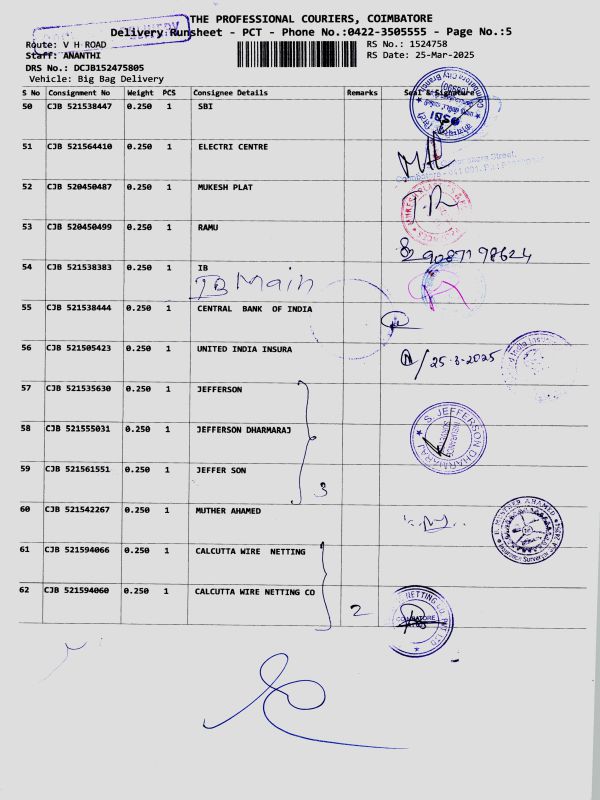 THE PROFESSIONAL COURIERS, COIMBATORE
Delivery Runsheet - PCT - Phone No.:0422-3505555 - Page No.:5
Route: V H ROAD
RS No.: 1524758
Staff: ANANTHI
RS Date: 25-Mar-2025
DRS No.: DCJB152475805
Vehicle: Big Bag Delivery
S No Consignment No Weight PCS Consignee Details Remarks Seal & Signature
50 CJB 521538447 0.250 1 SBI
SBI
51 CJB 521564410 0.250 1 ELECTRI CENTRE
52 CJB 520450487 0.250 1 MUKESH PLAT
53 CJB 520450499 0.250 1 RAMU
9087198624
54 CJB 521538383 0.250 1 IB
IB Main
55 CJB 521538444 0.250 1 CENTRAL BANK OF INDIA
56 CJB 521505423 0.250 1 UNITED INDIA INSURA
/25-3-2025
57 CJB 521535630 0.250 1 JEFFERSON
58 CJB 521555031 0.250 1 JEFFERSON DHARMARAJ
S. JEFFERSON DHARMARAJ
INSURANCE
59 CJB 521561551 0.250 1 JEFFER SON
3
60 CJB 521542267 0.250 1 MUTHER AHAMED
61 CJB 521594066 0.250 1 CALCUTTA WIRE NETTING
62 CJB 521594060 0.250 1 CALCUTTA WIRE NETTING CO
2
NETTING CO. PVT LTD
COIMBATORE